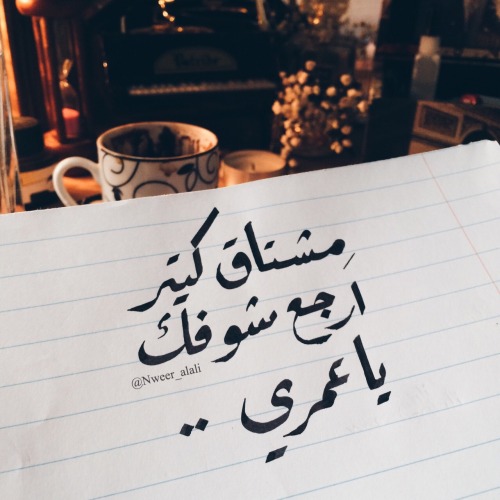 مِشتاق كتير
ارجع شوفك
ياعمري ..
@Nweer_alali